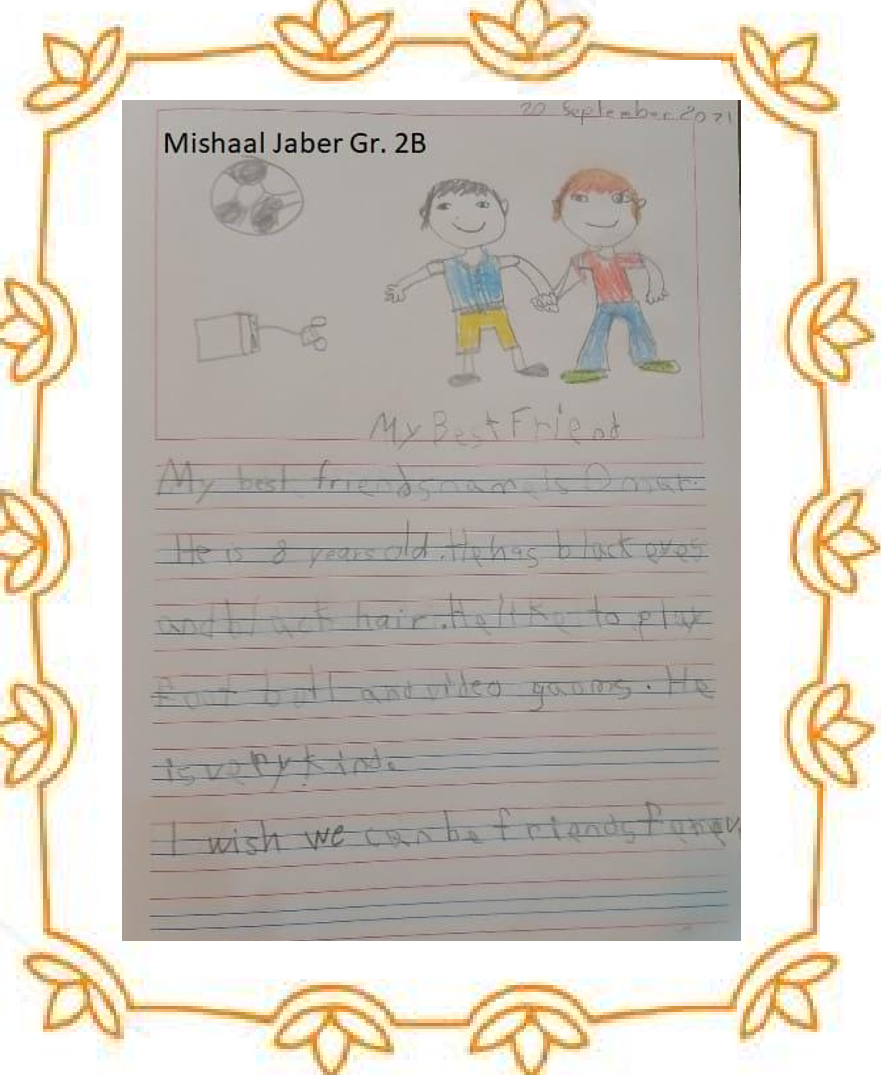 20 September 2021
Mishaal Jaber Gr. 2B
My Best Friend
My best friends name is Omar.
He is 8 years old. He has black eyes
and black hair. He like to play
foot ball and video gaoms. He
is very kind.
I wish we can be friends forev